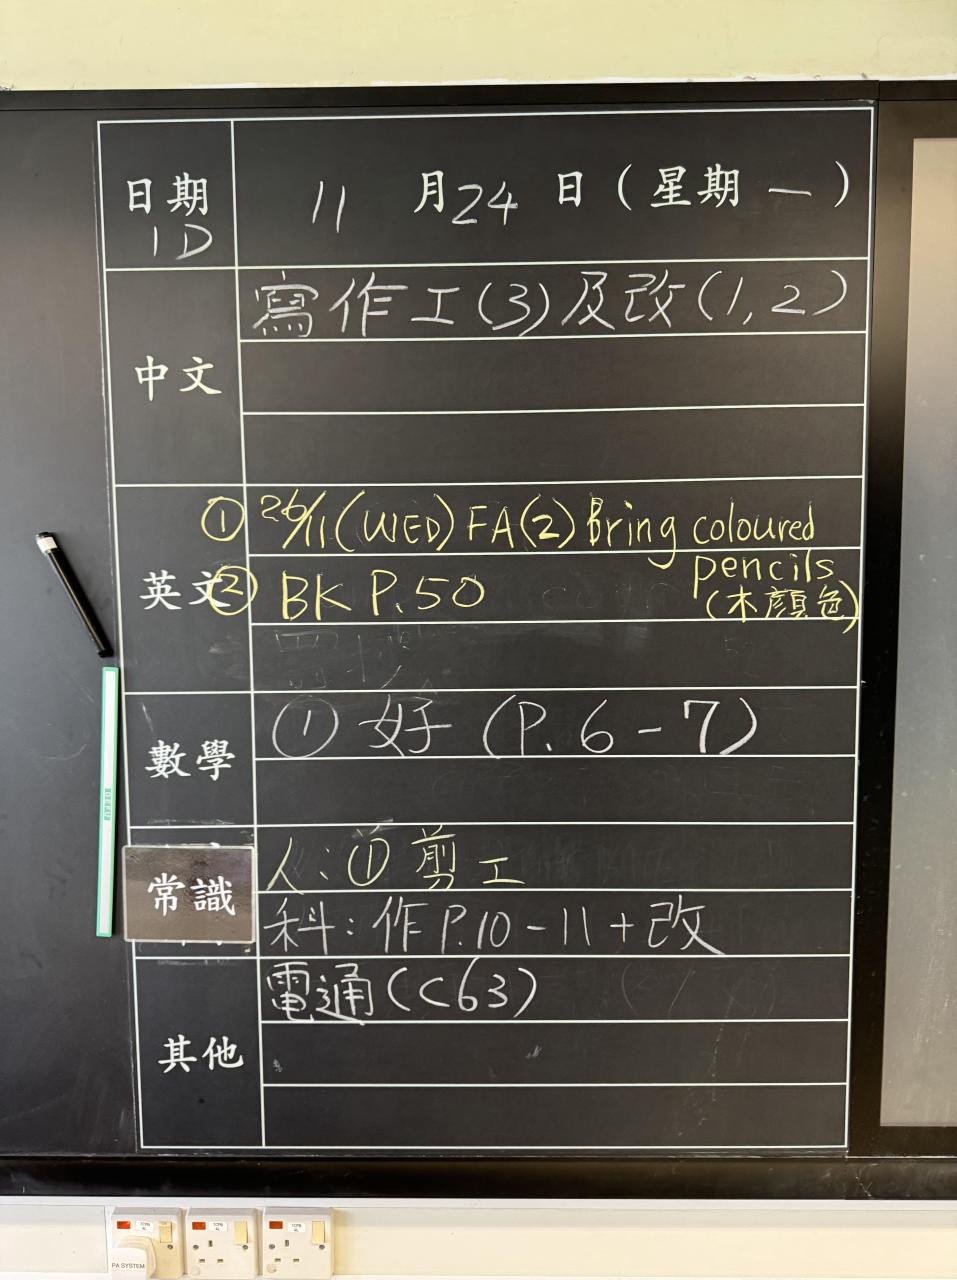 日期 11月24日(星期一)
1D
中文 寫作工(3)及改(1,2)
英文 ① 26/11(WED) FA(2) Bring coloured
pencils
② BK P.50 (木顏色)
數學 ① 好 (P.6-7)
常識 人:① 剪工
科:作P.10-11+改
其他 電通(C63)
TCPB
4L
TCPB
4L
TCPB
4L
PA SYSTEM